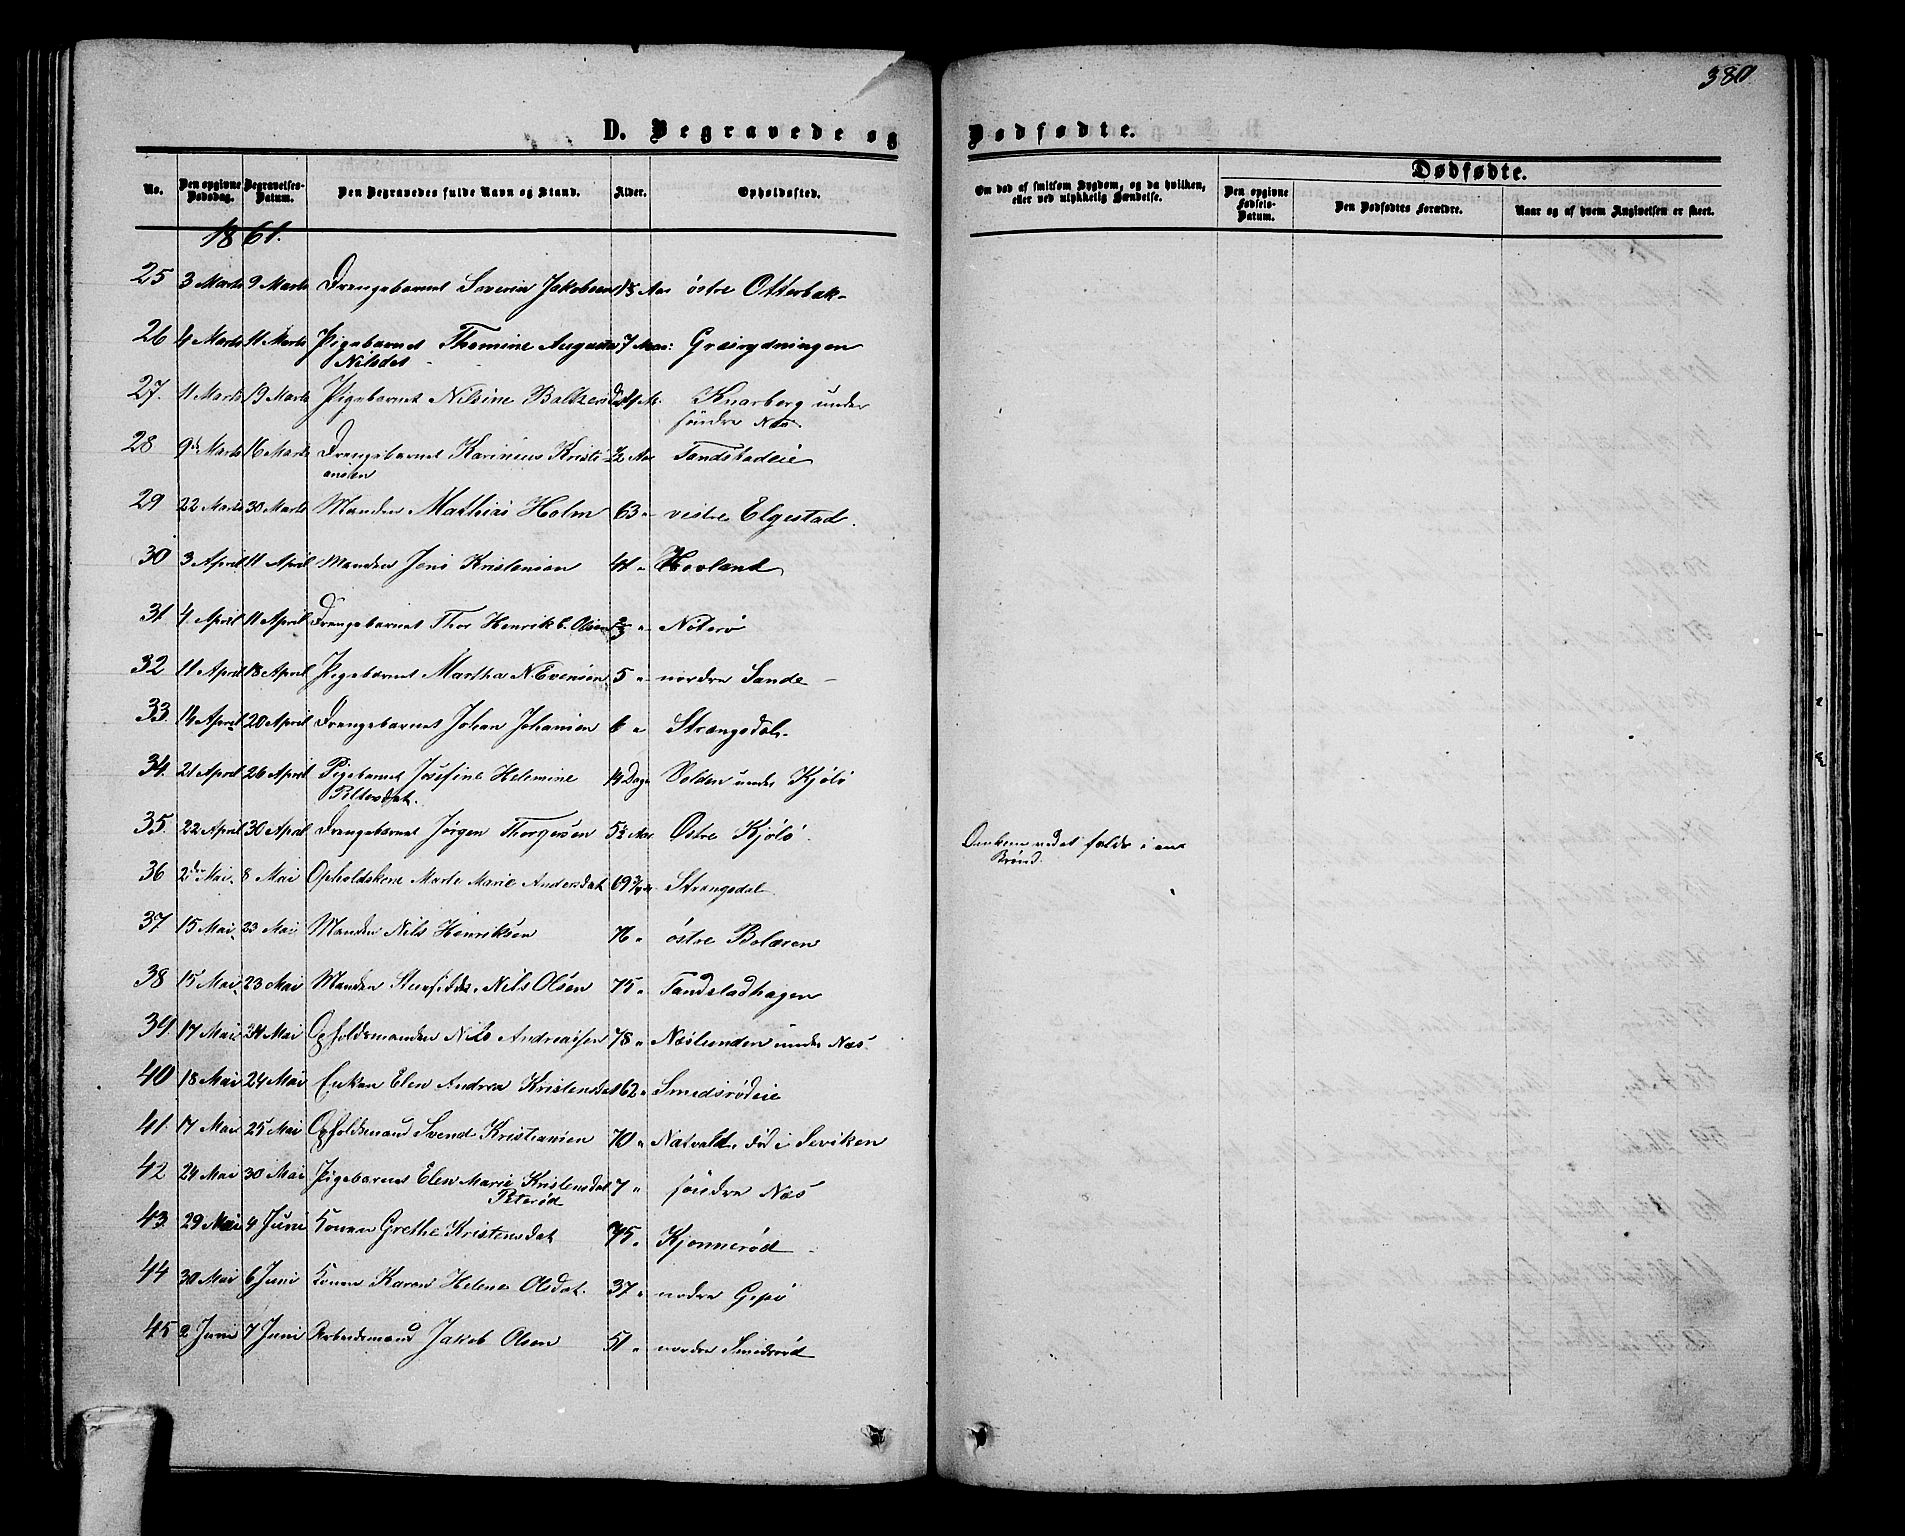 380
D. Begravede og Dødfødte.
No. Den opgivne Dødsdag. Begravelses-Datum. Den Begravedes fulde Navn og Stand. Alder. Opholdssted.
Om død af smitsom Sygdom, og da hvilken, eller ved ulykkelig Hændelse.
Dødfødte.
Den opgivne Fødsels-Datum. Den Dødfødtes Forældre. Naar og af hvem Angivelsen er skeet.
1861.
25 3 Marts 9 Marts Drengebarnet Severin Jakobsen østre Otterbæk
26 4 Marts 11 Marts Pigebarnet Thomine Augusta 7 Græsrydningen
Nilsdat
27. 11 Marts 19 Marts Pigebarnet Nilsine Knarberg under
søndre Næs
28 9de Marts 16 Marts Drengebarnet Karinius Kristi- ½ Aar Tandstadeie
ansen
29 22 Marts 30 Marts Manden Mathias Holm 63 " vestre Elgestad.
30 3 April 11 April Manden Jens Kristensen 41 " Hovland
31. 4 April 11 April Drengebarnet Thor Henrik E. Olsen " Nøterø
32 11 April 18 April Pigebarnet Martha N. Evensen 5 " nordre Sande
33. 14 April 20 April Drengebarnet Johan Johansen 6 " Strængsdal
34. 21 April 26 April Pigebarnet Josefine Helemine 14 Dage Volden under Kjølø
Pettersdat.
35. 22 April 30 April Drengebarnet Jørgen Thorgersen 5½ Aar Østre Kjølø. Omkom ved at falde i en
Brønd.
36 2den Mai 8 Mai Opholdskone Marte Marie Andersdat 69¾ " Strængsdal
37 15 Mai 23 Mai Manden Nils Henriksen 76 " østre Bolæren
38 15 Mai 23 Mai Manden Nils Olsen 75 " Tandstadhagen
39. 17 Mai 24 Mai Opholdsmanden Nils Andreassen 78 " Næslunden under Næs.
40 18 Mai 24 Mai Enken Elen Andrea Kristensdat 62 " Smedsrødeie
41. 17 Mai 25 Mai Opholdsmand Svend Kristiansen 70 " Natvald, død i Seviken
42 24 Mai 30 Mai Pigebarnet Elen Marie Kristensdat 7 " søndre Næs
Peterød
43. 29 Mai 4 Juni Konen Grethe Kristensdat 75 " Kjønnerød
44 30 Mai 6 Juni Konen Karen Helene Olsdat. 37 " nordre Gipø
45 2 Juni 7 Juni Arbeidsmand Jakob Olsen 51 " nordre Smidsrød